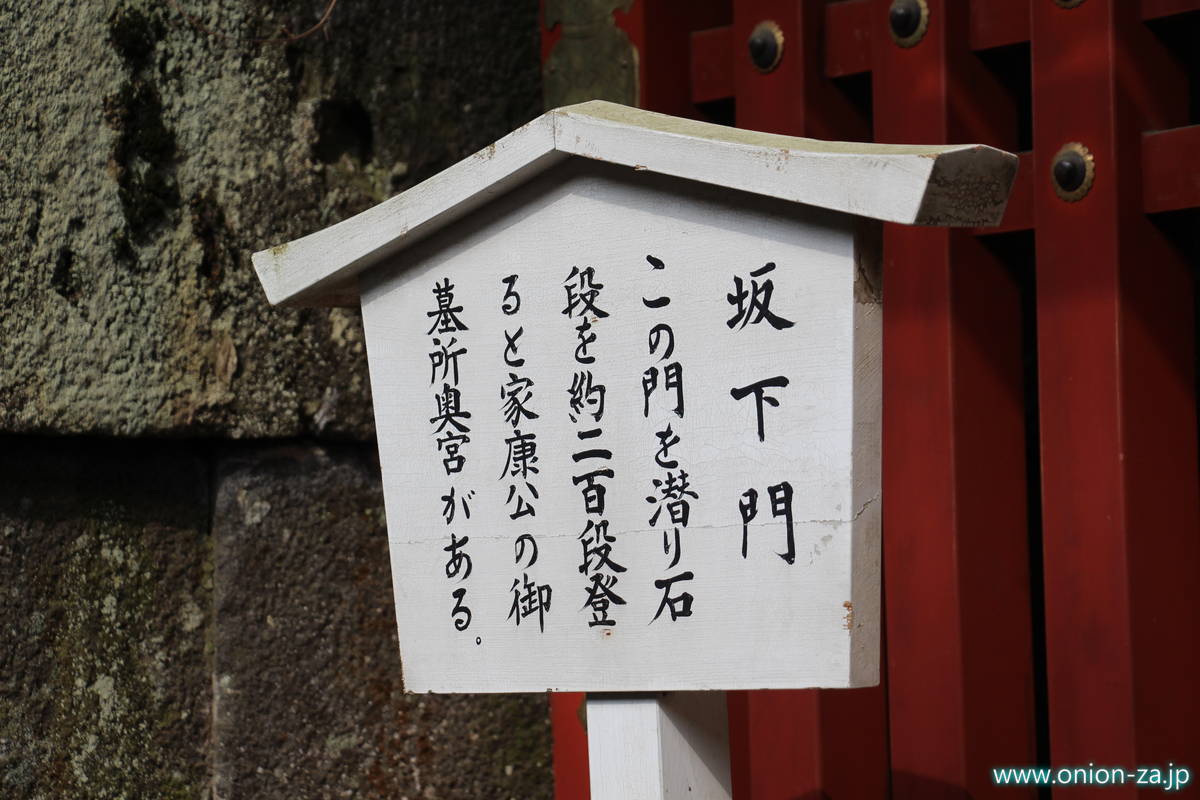 坂下門
この門を潜り石
段を約二百段登
ると家康公の御
墓所奥宮がある。
www.onion-za.jp